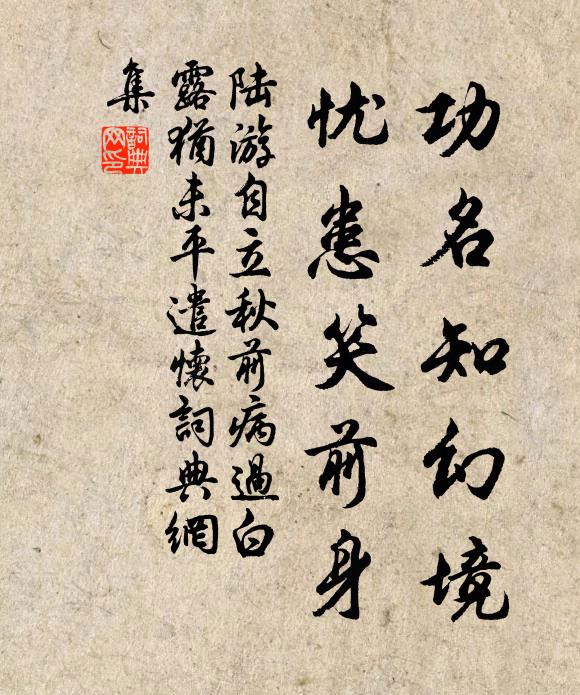 功名知幻境
忧患笑前身
陆游自立秋前病過白
露猶未平遣懷詞典網
集
詞典
网印